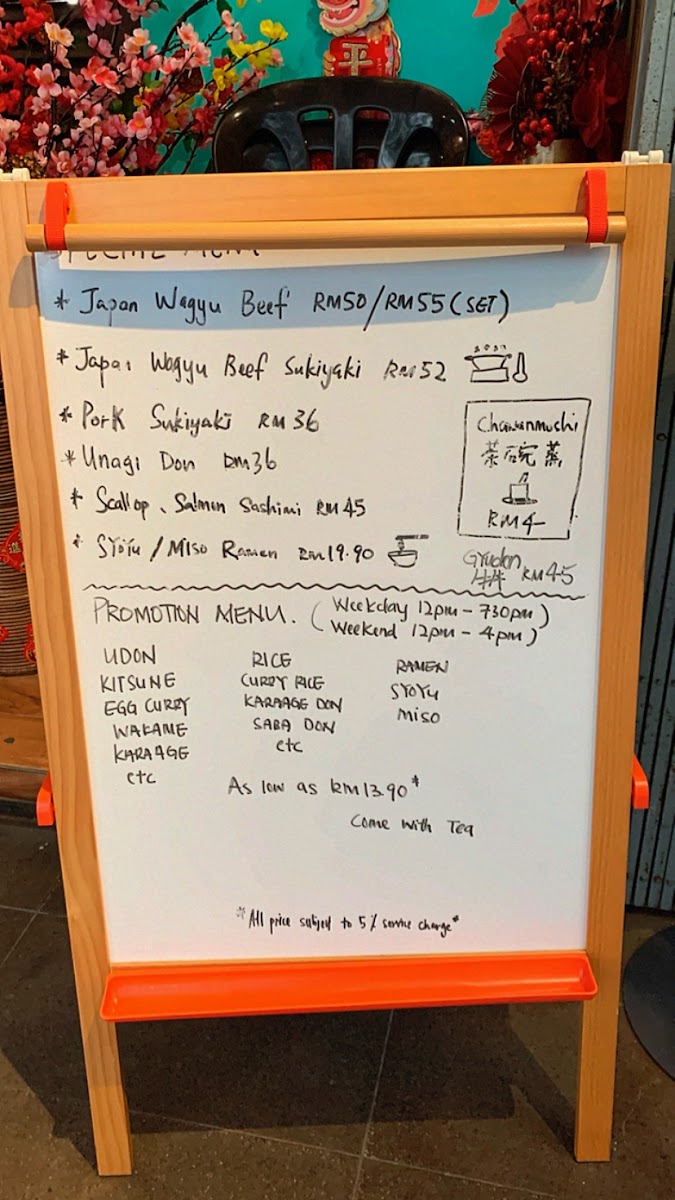 平
SPECIAL MENU
* Japan Wagyu Beef RM50/RM55 (SET)
* Japan Wagyu Beef Sukiyaki RM52
* Pork Sukiyaki RM36
* Unagi Don RM36
* Scallop、Salmon Sashimi RM45
* SYOYU / MISO Ramen RM19.90
Chawanmushi
茶碗蒸
RM4-
Gyudon
牛丼 RM45
PROMOTION MENU. (Weekday 12pm - 730pm)
(Weekend 12pm - 4pm)
UDON
KITSUNE
EGG CURRY
WAKAME
KARAAGE
etc
RICE
CURRY RICE
KARAAGE DON
SABA DON
etc
RAMEN
SYOYU
MISO
As low as RM13.90*
Come with Tea
*All price subject to 5% service charge*